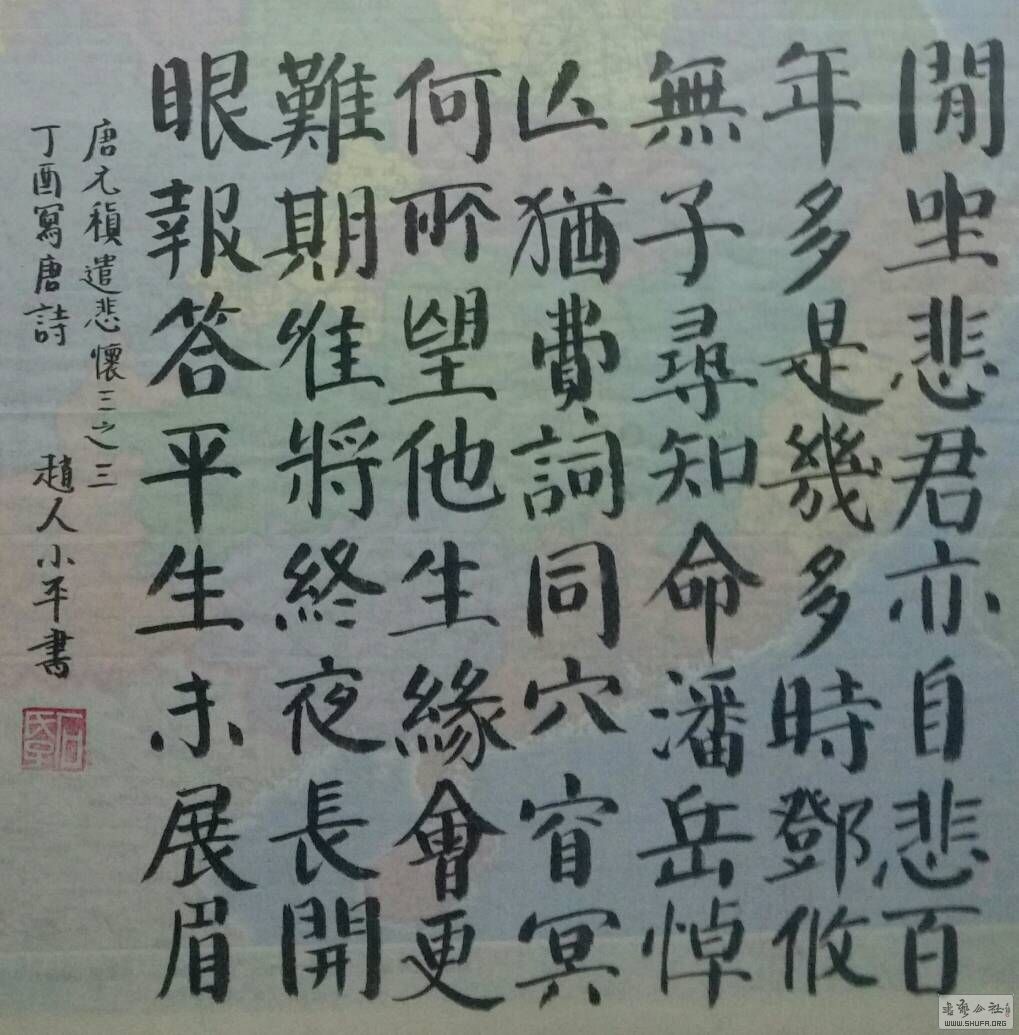 閒坐悲君亦自悲百
年多是幾多時鄧攸
無子尋知命潘岳悼
亾猶費詞同穴窅冥
何所望他生緣會更
難期惟將終夜長開
眼報答平生未展眉
唐元稹遣悲懷三之三
丁酉寫唐詩 趙人小平書
WWW.SHUFA.ORG